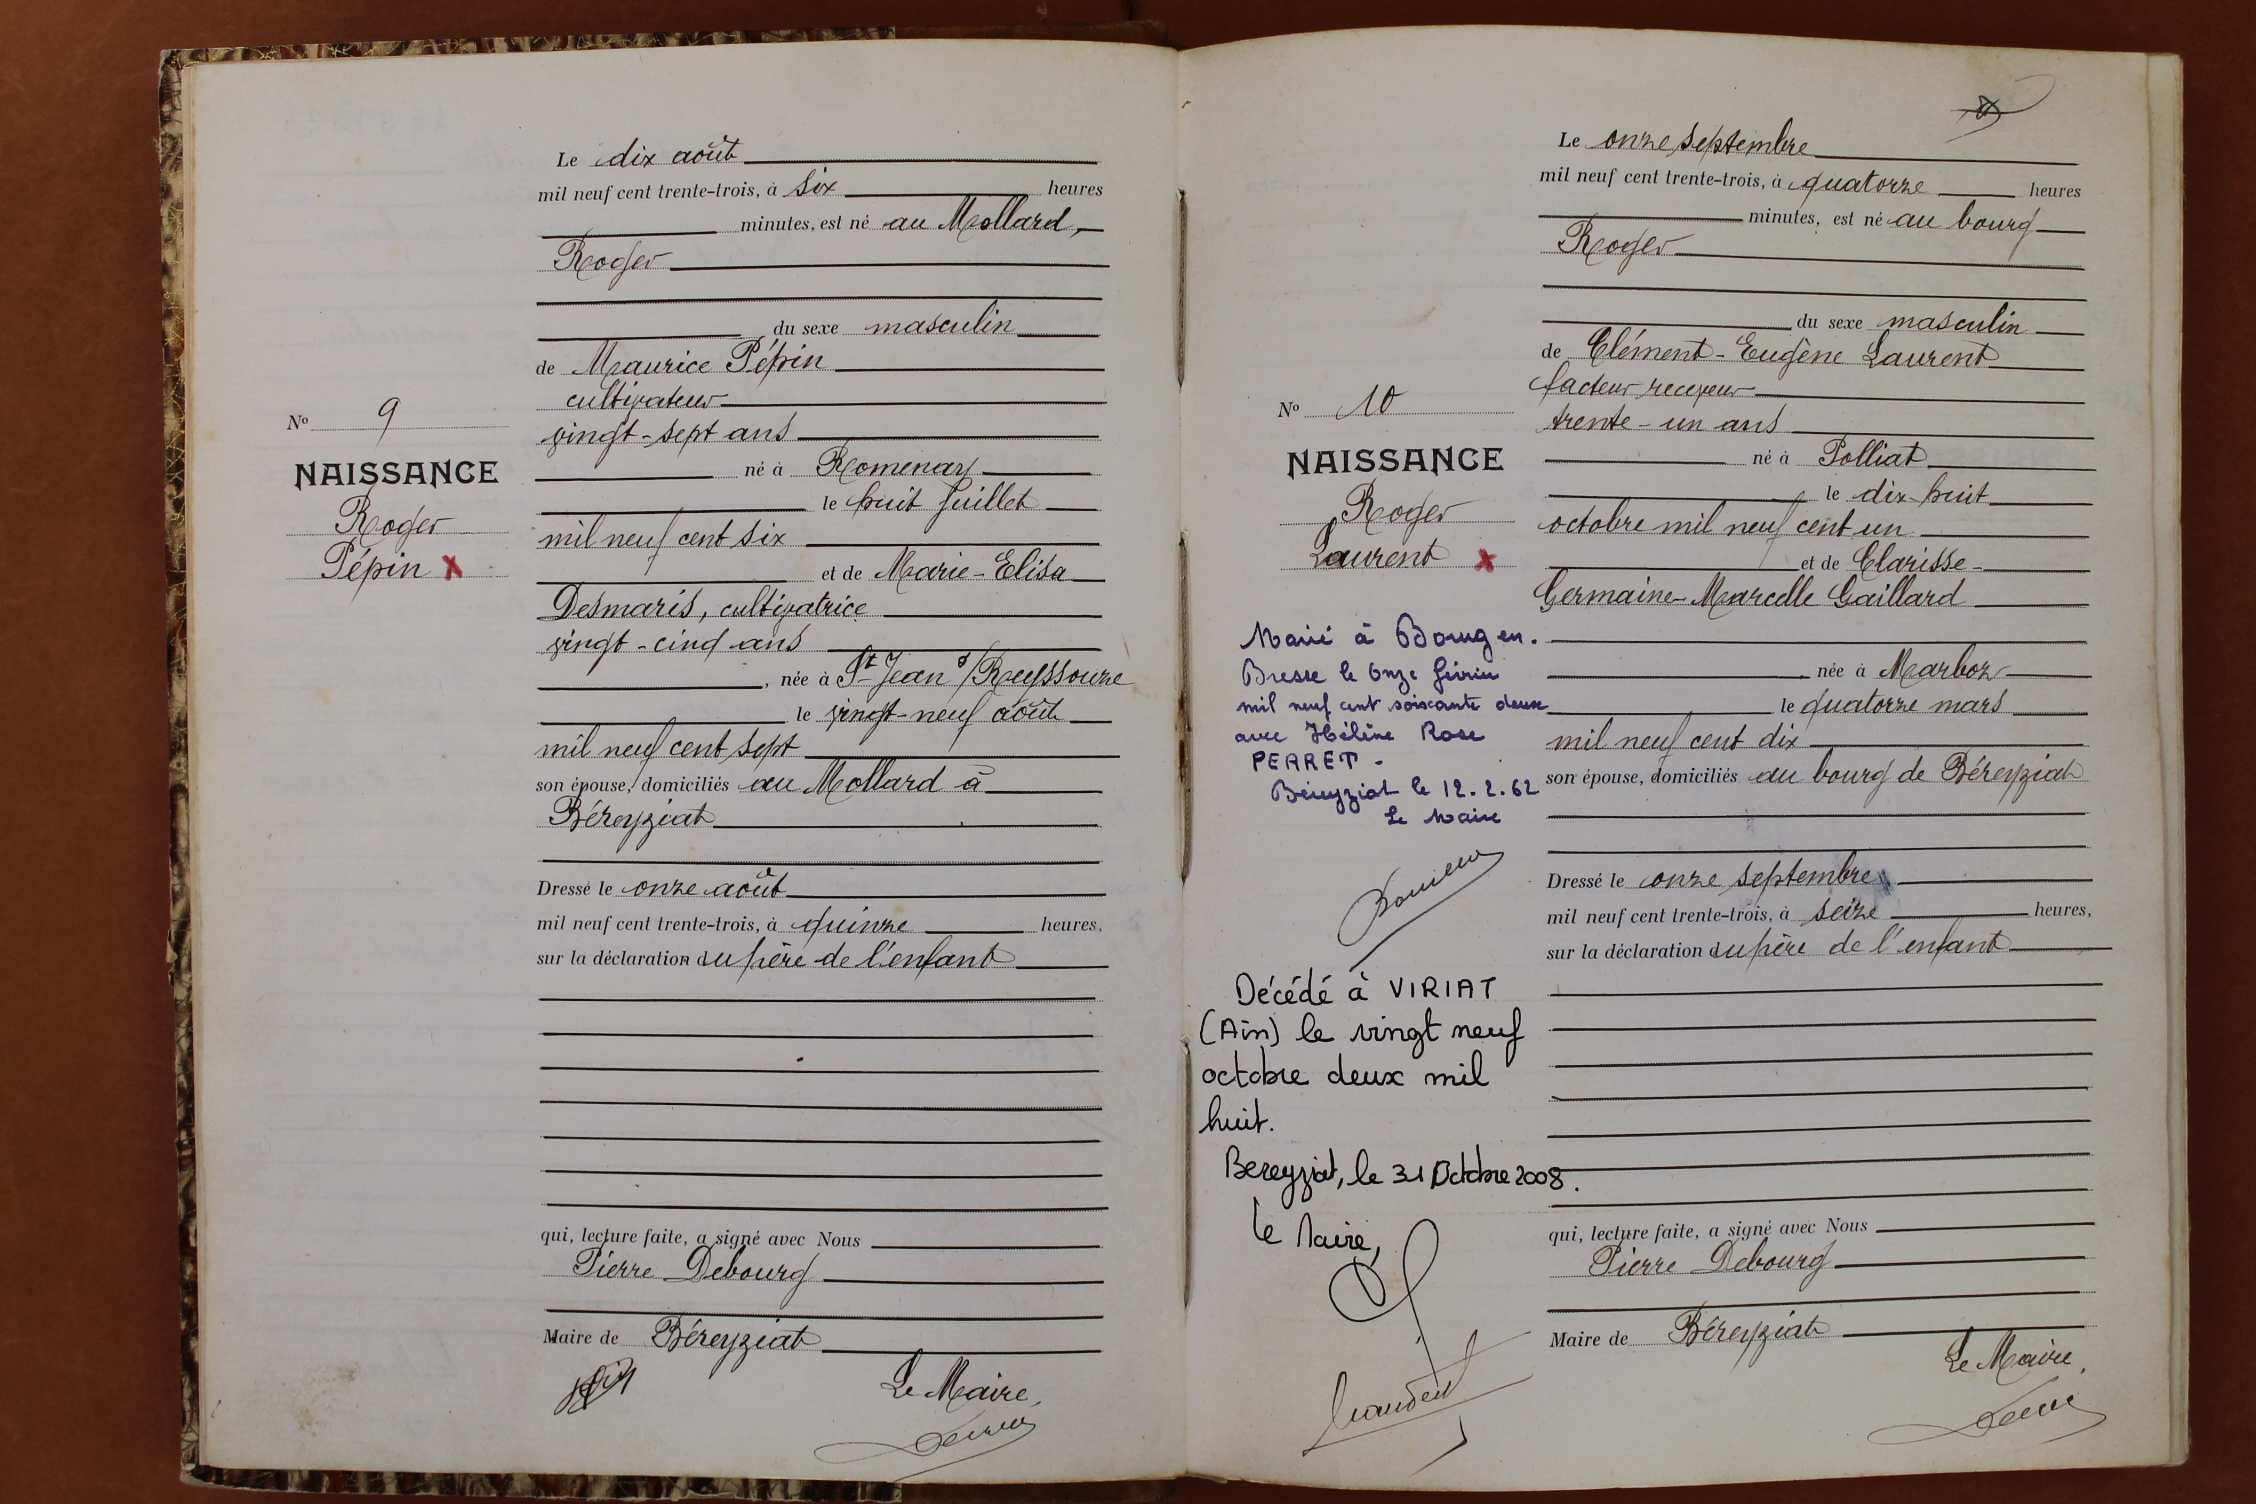 Le dix août
mil neuf cent trente-trois, à six heures
minutes, est né au Mollard,
Roger
du sexe masculin
de Maurice Pépin
cultivateur
vingt-sept ans
né à Romenay
le huit juillet
mil neuf cent six
et de Marie-Elisa
Desmaris, cultivatrice
vingt-cinq ans
, née à St Jean s/Reyssouze
le vingt-neuf août
mil neuf cent sept
son épouse, domiciliés au Mollard à
Béreyziat
Dressé le onze août
mil neuf cent trente-trois, à quinze heures,
sur la déclaration du père de l'enfant
qui, lecture faite, a signé avec Nous
Pierre Debourg
Maire de Béreyziat
Le Maire,
No 9
NAISSANCE
Roger
Pépin x
Le onze septembre
mil neuf cent trente-trois, à quatorze heures
minutes, est né au bourg
Roger
du sexe masculin
de Clément-Eugène Laurent
facteur receveur
trente-un ans
né à Polliat
le dix-huit
octobre mil neuf cent un
et de Clarisse-
Germaine-Marcelle Gaillard
née à Marboz
le quatorze mars
mil neuf cent dix
son épouse, domiciliés au bourg de Béreyziat
Dressé le onze septembre
mil neuf cent trente-trois, à seize heures,
sur la déclaration du père de l'enfant
qui, lecture faite, a signé avec Nous
Pierre Debourg
Maire de Béreyziat
Le Maire,
No 10
NAISSANCE
Roger
Laurent x
Marié à Bourg en.
Bresse le onze février
mil neuf cent soixante deux
avec Hélène Rose
PERRET -
Béreyziat le 12.2.62
Le Maire
Décédé à VIRIAT
(Ain) le vingt neuf
octobre deux mil
huit.
Bereyziat, le 31 Octobre 2008.
Le Maire,